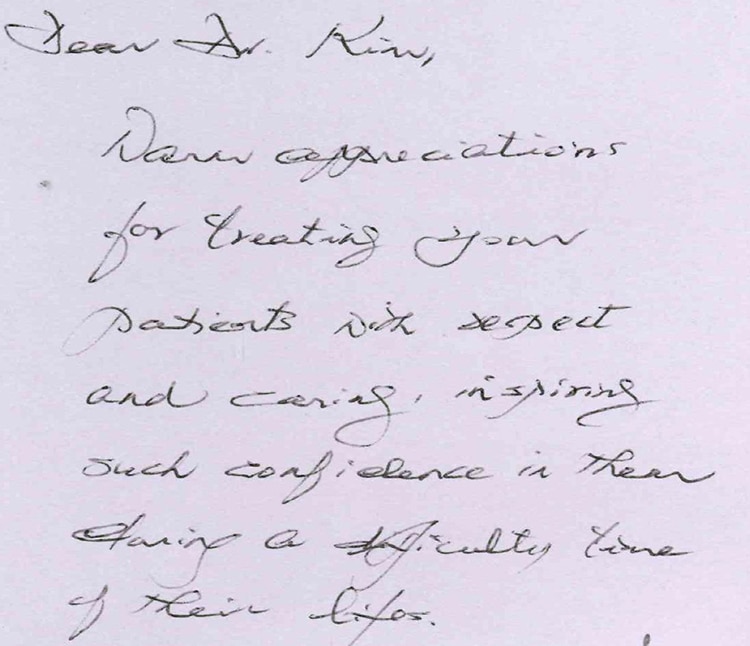 Dear Dr. Kim,
Warm appreciations
for treating your
patients with respect
and caring, inspiring
such confidence in them
during a difficulty time
of their lifes.